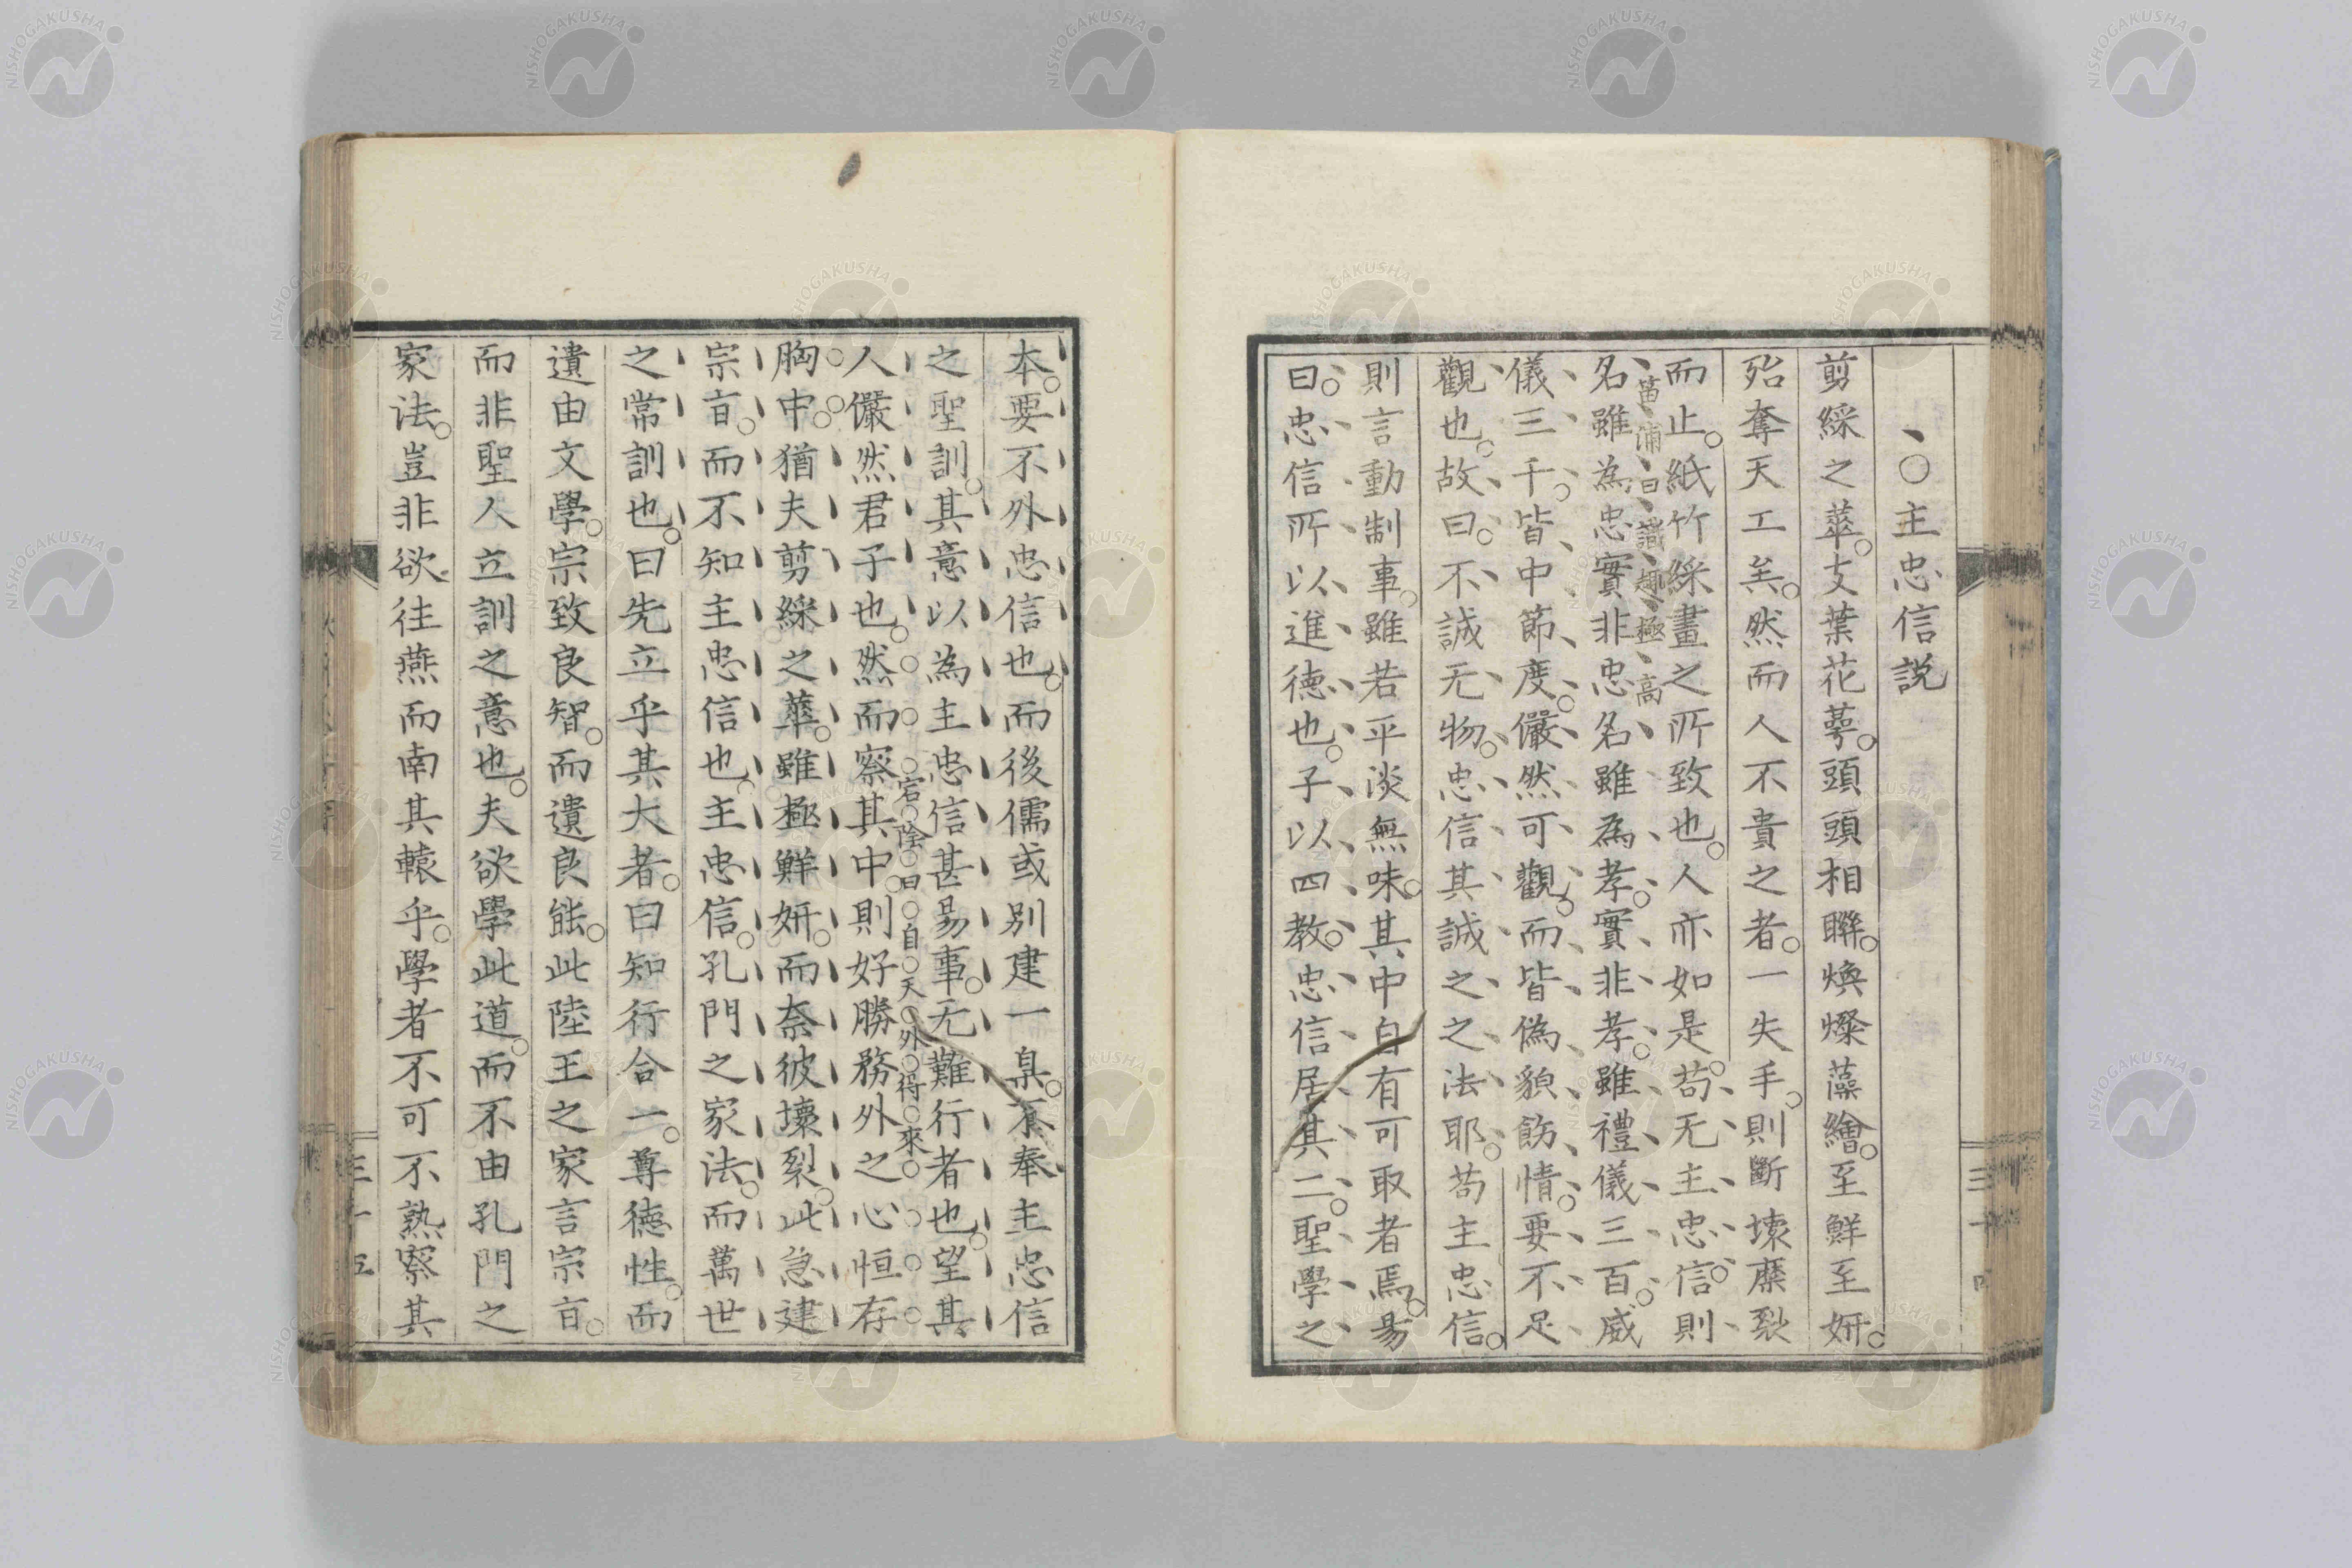 、○主忠信說
剪綵之蕐。支葉花蕚。頭頭相聯。煥燦藻繪。至鮮至妍。
殆奪天工矣。然而人不貴之者。一失手。則斷壊糜裂
而止。紙竹綵畫之所致也。人亦如是。苟无主忠信。則
笛浦曰識趣極高
名雖為忠實非忠名雖為孝。實非孝。雖禮儀三百。威
儀三千。皆中節度。儼然可觀。而皆偽貌飭情。要不足
觀也。故曰。不誠无物。忠信其誠之之法耶。苟主忠信。
則言動制事。雖若平淡無味。其中自有可取者焉。易
曰。忠信所以進德也。子以四教。忠信居其二。聖學之
三十
本。要不外忠信也。而後儒或別建一梟。不奉主忠信
之聖訓。其意以為主忠信甚易事。无難行者也。望其
宕陰曰自天外得來
人儼然君子也。然而察其中。則好勝務外之心恒存
胸中。猶夫剪綵之蕐。雖極鮮妍。而奈彼壞裂。此急建
宗㫖。而不知主忠信也。主忠信。孔門之家法。而萬世
之常訓也。曰先立乎其大者。曰知行合一。尊德性。而
遺由文學。宗致良智。而遺良能。此陸王之家言宗㫖。
而非聖人立訓之意也。夫欲學此道。而不由孔門之
家法。豈非欲往燕而南其轅乎。學者不可不熟察其
三十五